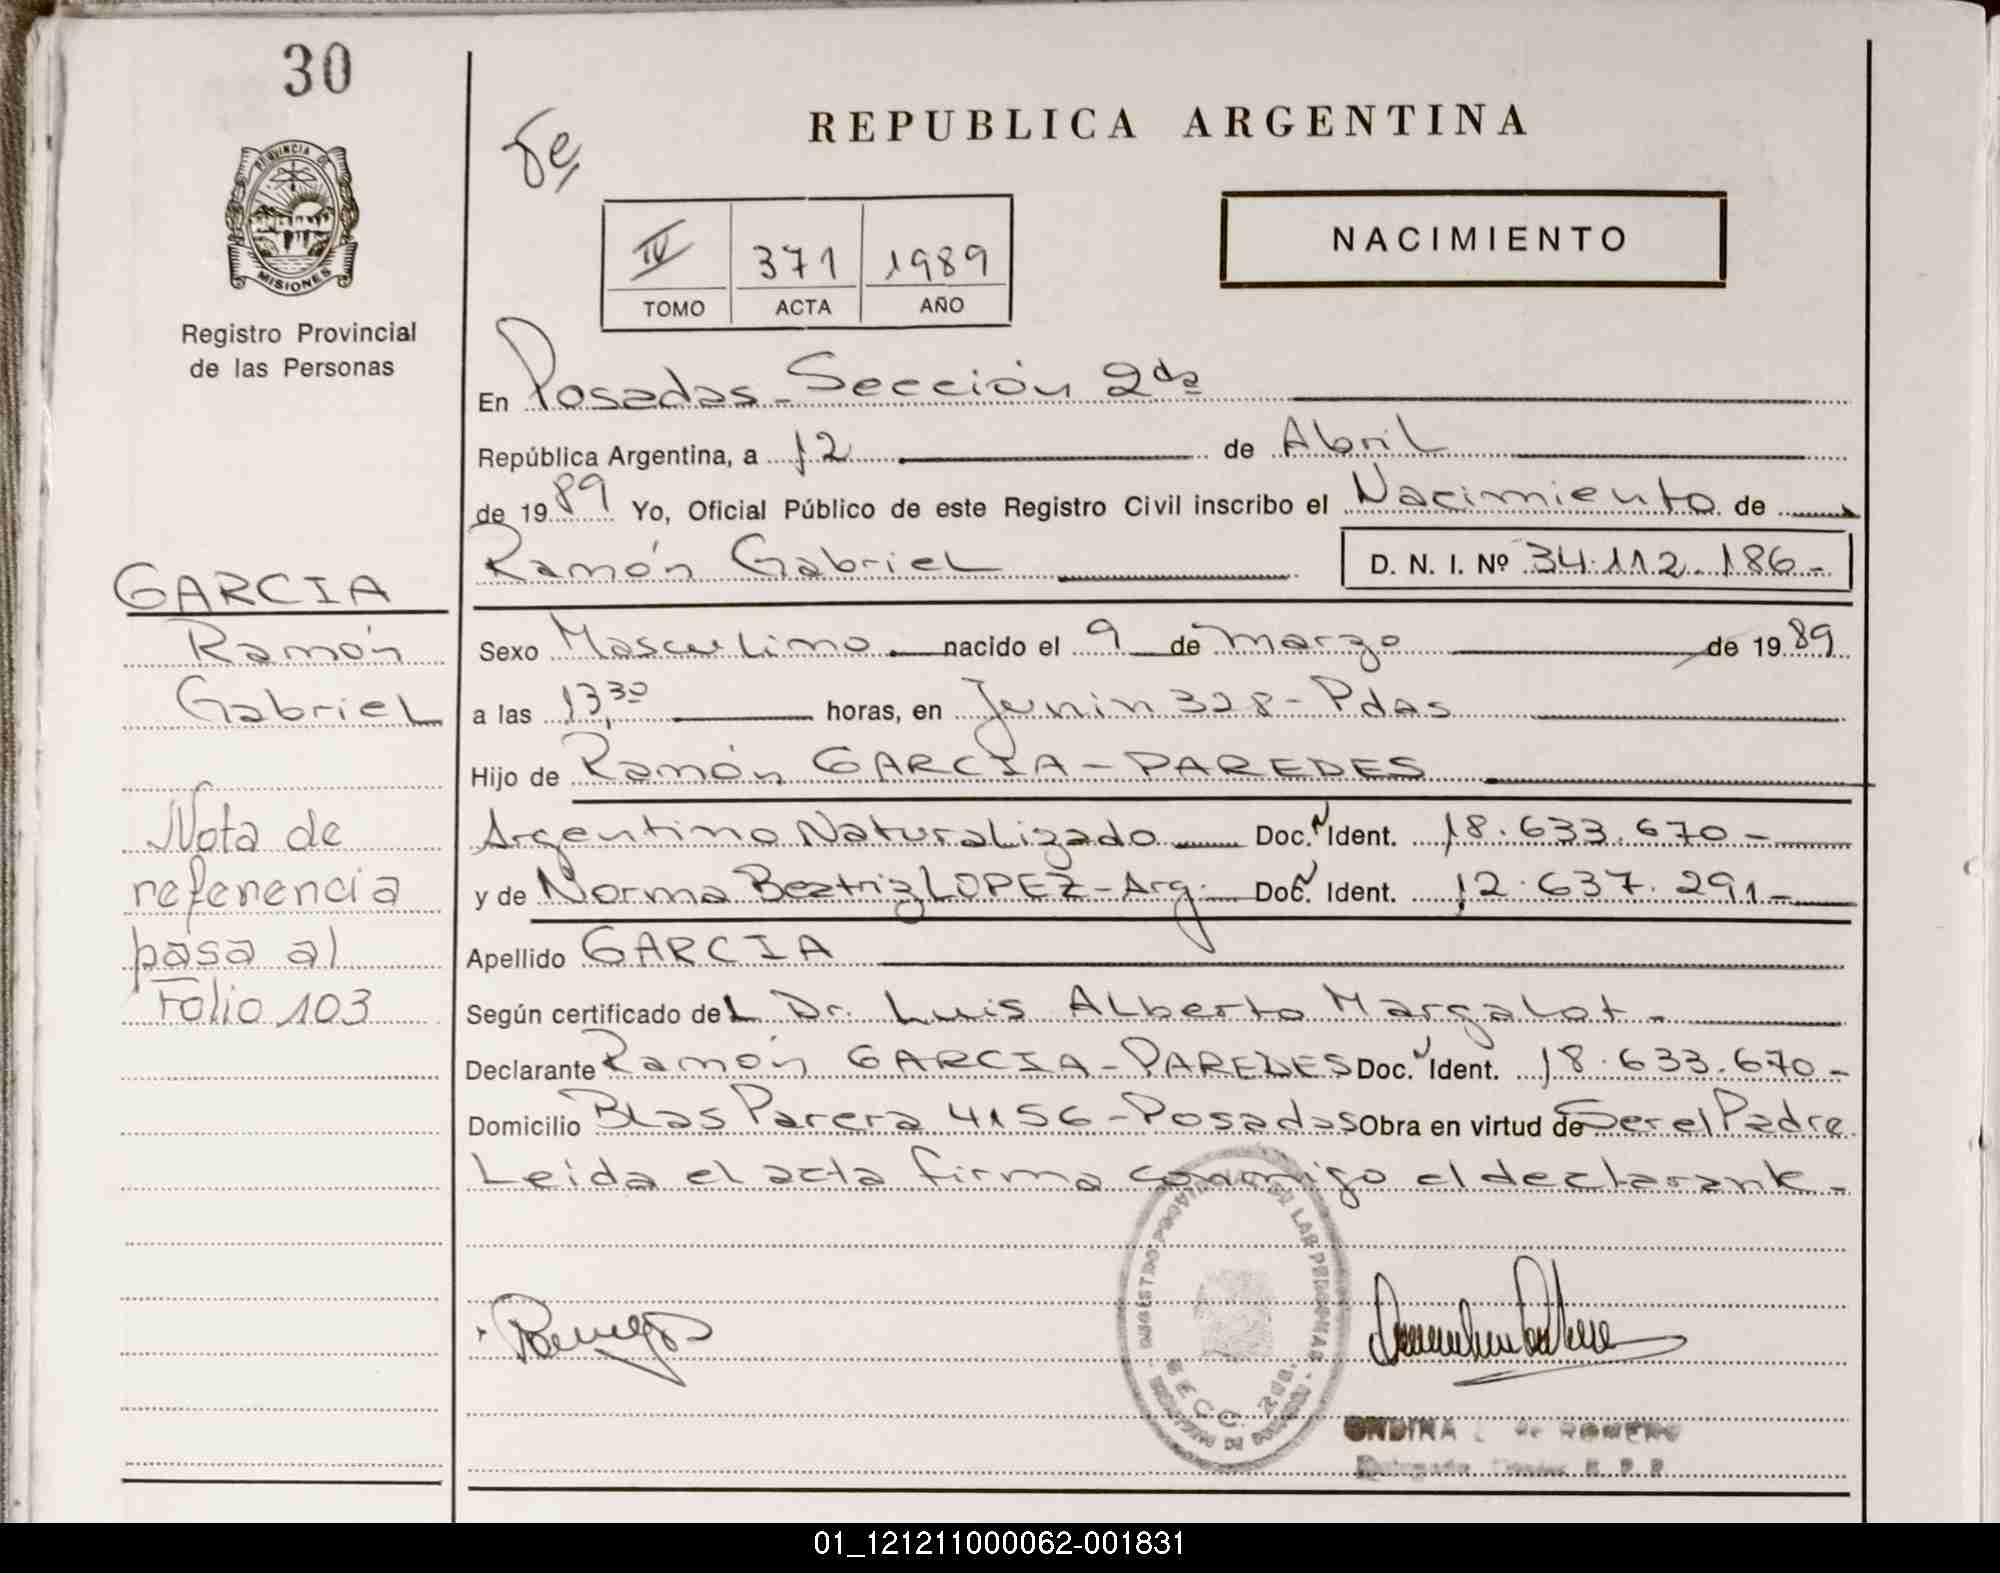 30
REPUBLICA ARGENTINA
PROVINCIA DE
MISIONES
Registro Provincial
de las Personas
IV 371 1989
TOMO ACTA AÑO
NACIMIENTO
En Posadas - Sección 2da
República Argentina, a 12 de Abril
de 1989 Yo, Oficial Público de este Registro Civil inscribo el Nacimiento de
Ramón Gabriel D. N. I. Nº 34.112.186-
GARCIA
Ramón
Gabriel
Sexo Masculino nacido el 9 de marzo de 1989
a las 13,30 horas, en Junin 328 - Pdas
Hijo de Ramón GARCIA - PAREDES
Argentino Naturalizado Doc. Ident. 18.633.670-
y de Norma Beatriz LOPEZ - Arg. Doc. Ident. 12.637.291-
Apellido GARCIA
Según certificado del Dr. Luis Alberto Margalot -
Declarante Ramón GARCIA - PAREDES Doc. Ident. 18.633.670-
Domicilio Blas Parera 4156 - Posadas Obra en virtud de Ser el Padre
Leida el acta firma conmigo el declarante -
Nota de
referencia
pasa al
Folio 103
LAS PERSONAS
SECC. 2da.
ONDINA de ROMERO
01_121211000062-001831